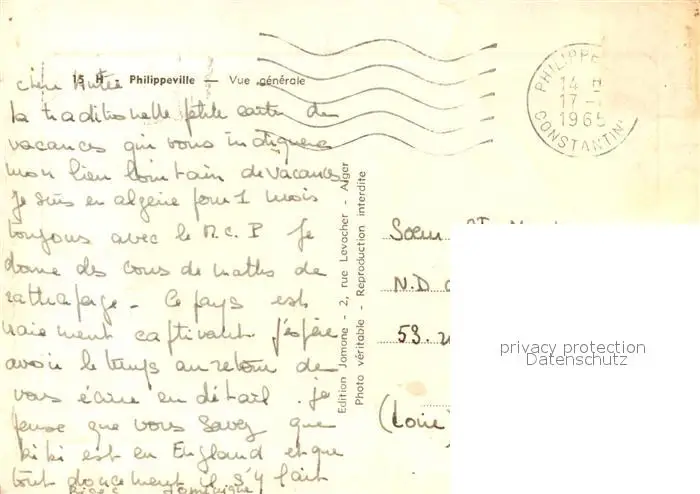 15 H - Philippeville — Vue générale
la traditionnelle petite carte de
vacances qui vous indiquera
mon lieu lointain de vacances
Je suis en algérie pour 1 mois
toujours avec le M.C.P Je
donne des cours de maths de
rattrapage - Ce pays est
vraiment captivant j'espère
avoir le temps au retour de
vous écrire en détail . je
pense que vous savez que
kiki est en England et que
tout doucement il s'y fait
Bises Dominique
Edition Jomone - 2, rue Levacher - Alger
Photo véritable - Reproduction interdite
PHILIPPE
14 H
17 -
1965
CONSTANTIN
Soeur St
N.D
53.
(Loire)
privacy protection
Datenschutz